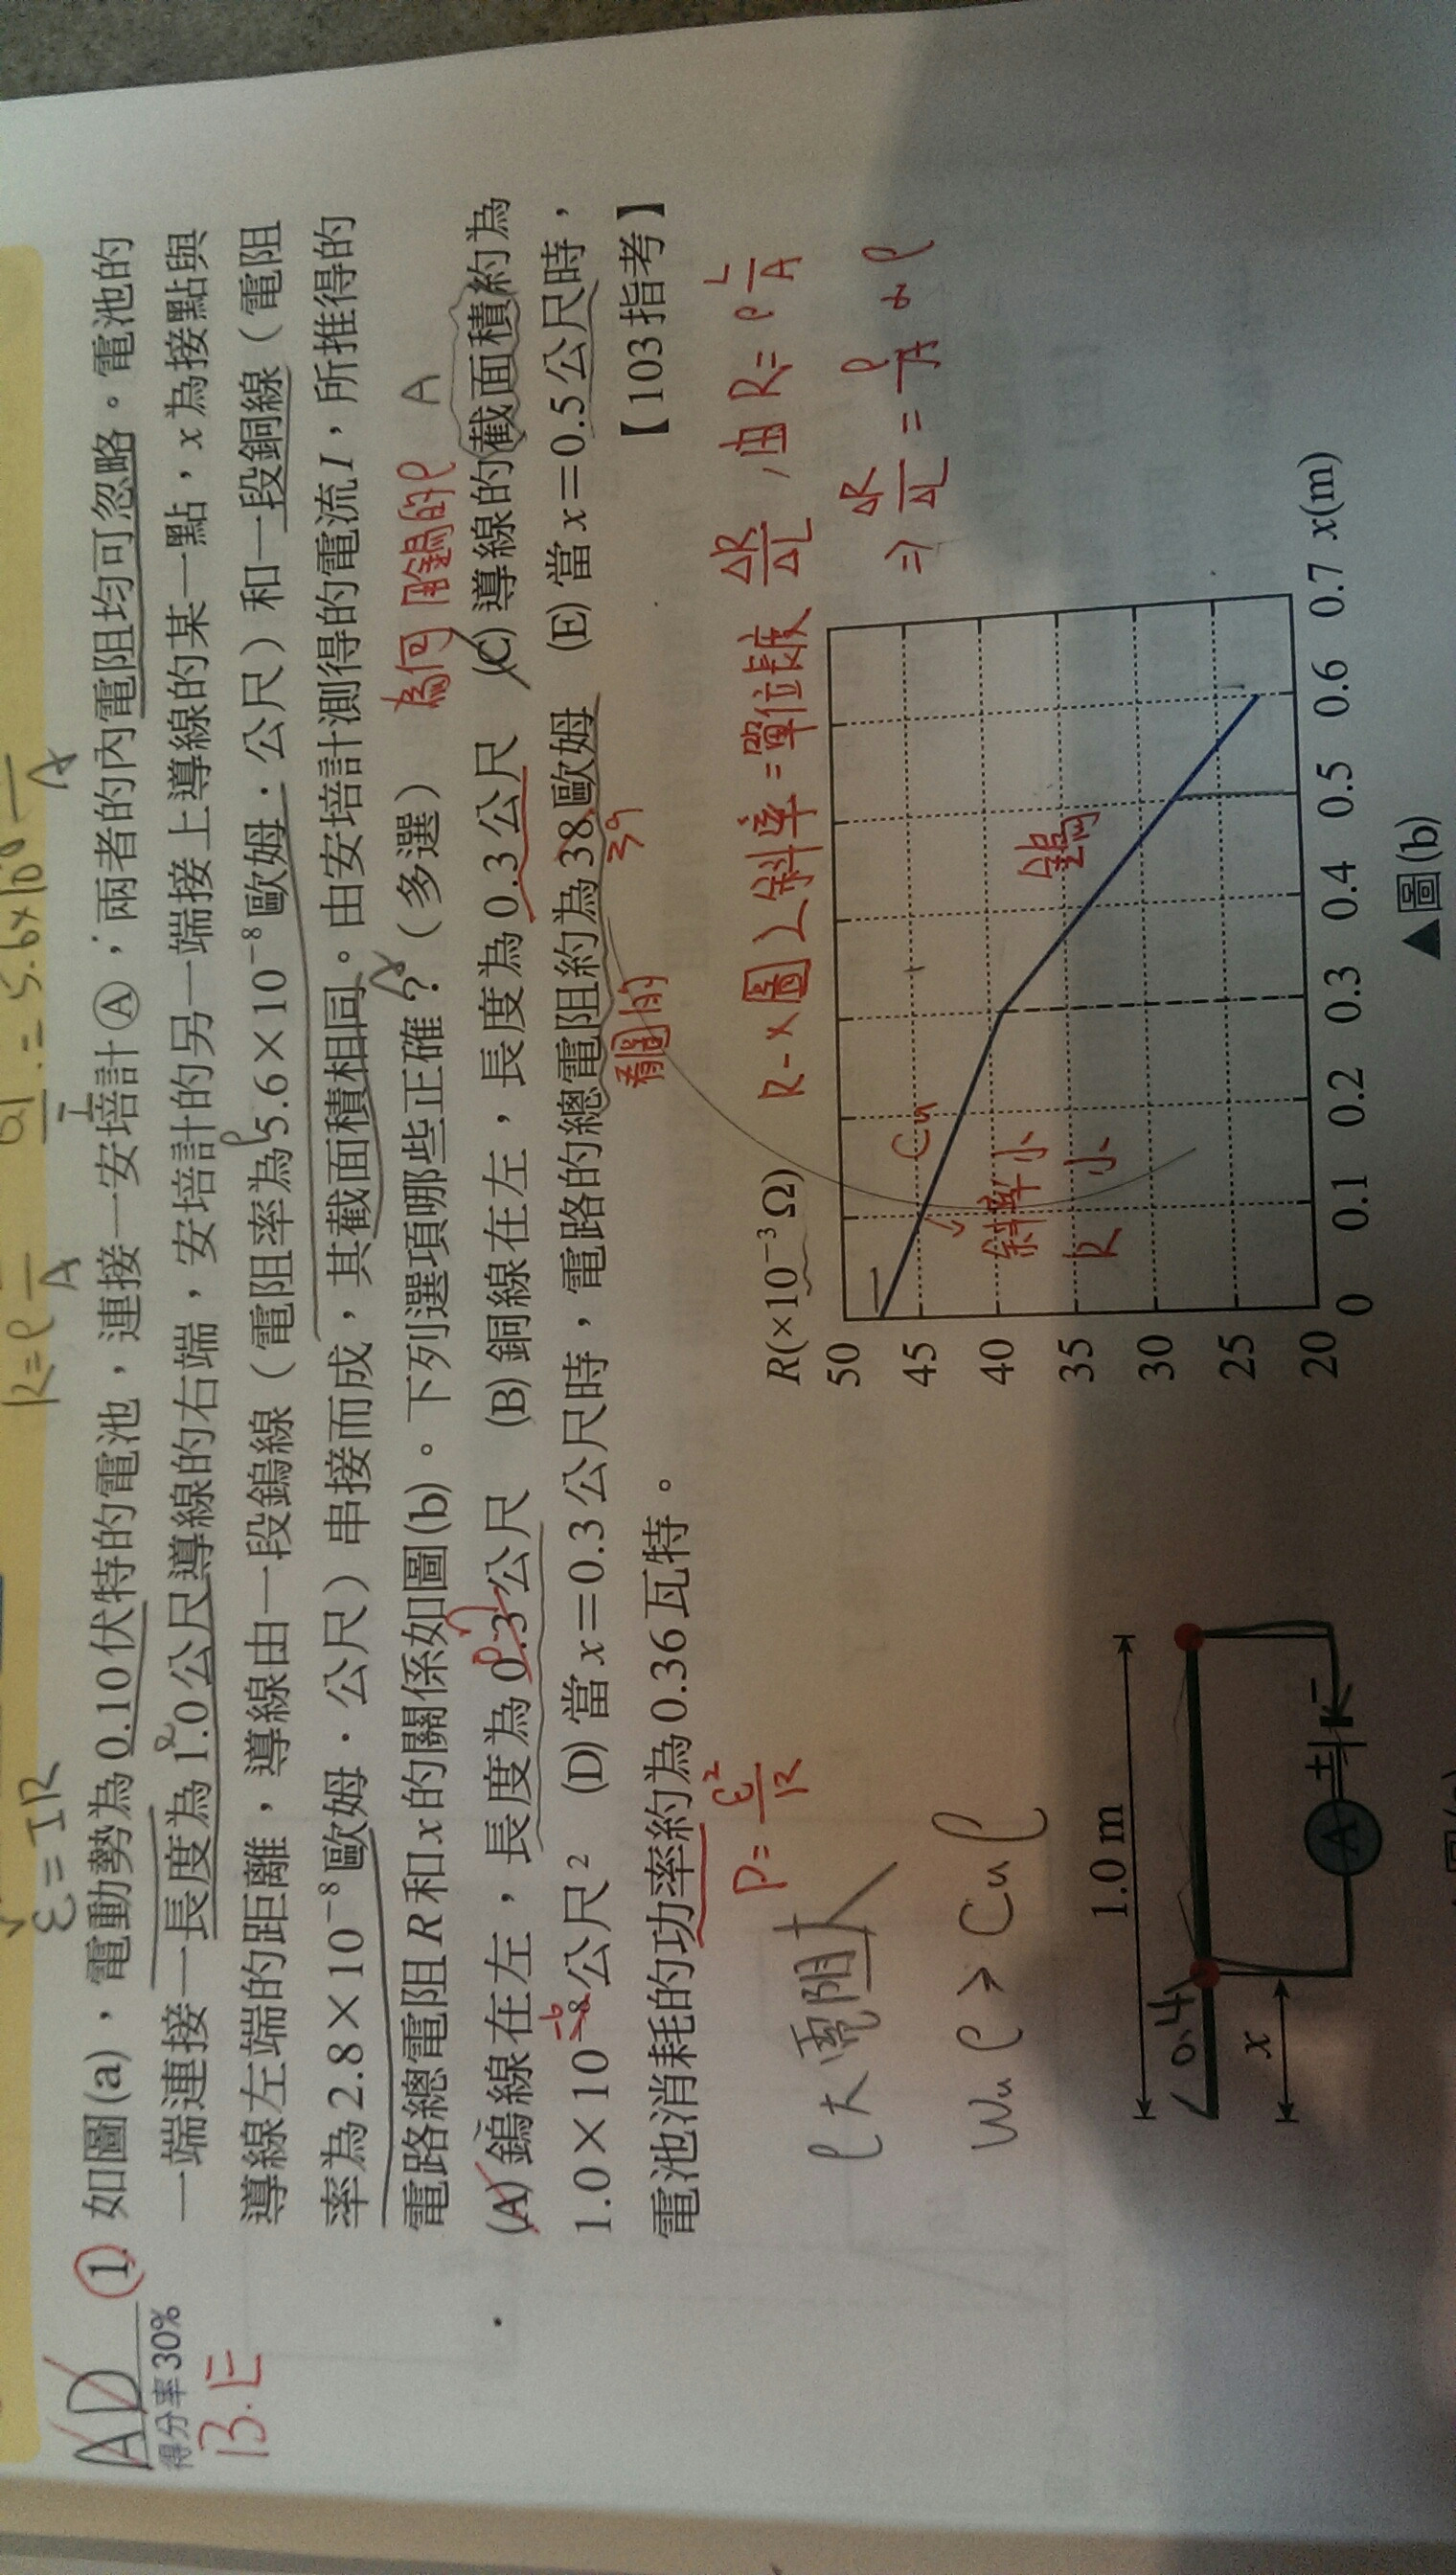 R=ρ — A
= 5.6×10⁻⁸ — A
ε = IR
AD
得分率30%
B.E
1. 如圖(a),電動勢為0.10伏特的電池,連接一安培計Ⓐ,兩者的內電阻均可忽略。電池的
I
一端連接一長度為1.0公尺導線的右端,安培計的另一端接上導線的某一點,x為接點與
導線左端的距離,導線由一段鎢線(電阻率為5.6×10⁻⁸歐姆.公尺)和一段銅線(電阻
率為2.8×10⁻⁸歐姆.公尺)串接而成,其截面積相同。由安培計測得的電流I,所推得的
電路總電阻R和x的關係如圖(b)。下列選項哪些正確?(多選)
為何用鎢的ρ
A
(A)鎢線在左,長度為0.3公尺 (B)銅線在左,長度為0.3公尺 (C)導線的截面積約為
0.7
1.0×10⁻⁸公尺² (D)當x=0.3公尺時,電路的總電阻約為38歐姆 (E)當x=0.5公尺時,
-6
39
看圖的
電池消耗的功率約為0.36瓦特。 【103指考】
P=ε²/R
R-x圖之斜率=單位長度 ΔR/ΔL ,由R=ρ L/A
⇒ ΔR/ΔL = ρ/A ∝ ρ
ρ大電阻大
Wu ρ > Cu ρ
1.0 m
0.4
x
A
R(×10⁻³ Ω)
50
45
40
35
30
25
20
0 0.1 0.2 0.3 0.4 0.5 0.6 0.7 x(m)
Cu
斜率小
R 小
鎢
▲圖(b)